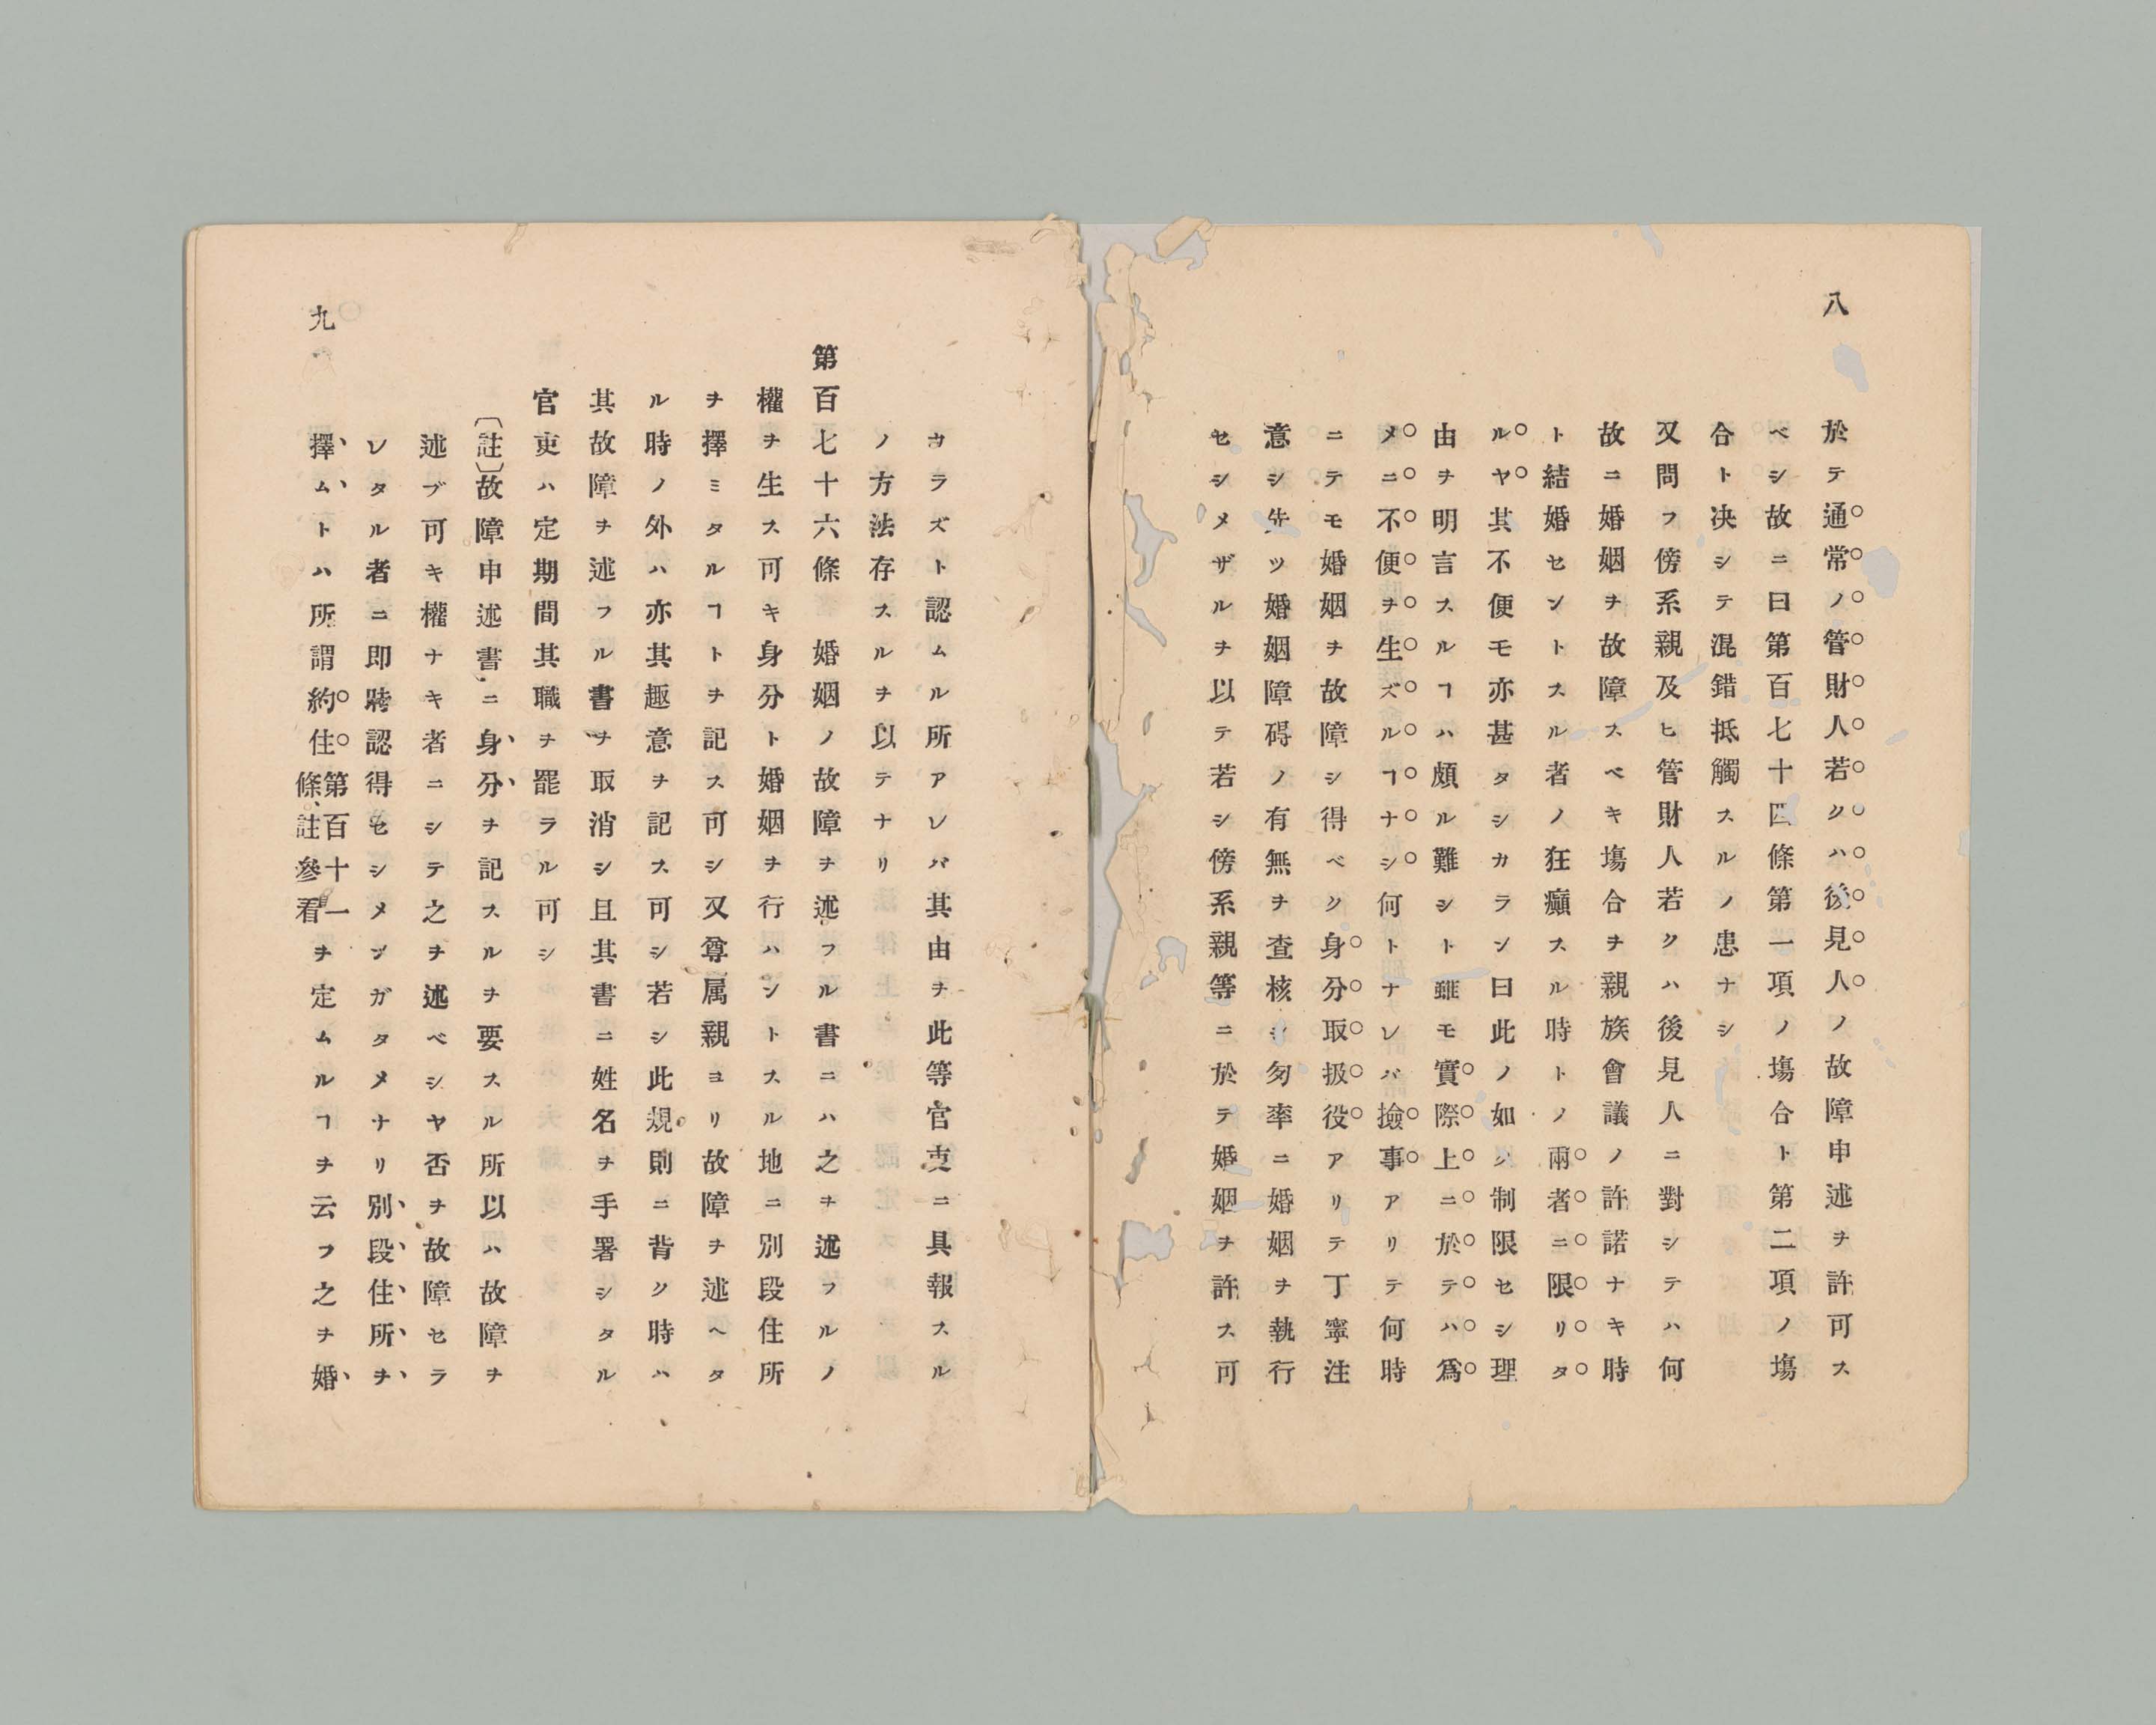 八
於テ通常ノ管財人若クハ後見人ノ故障申述ヲ許可ス
ベシ故ニ曰第百七十四條第一項ノ塲合ト第二項ノ塲
合ト決シテ混錯抵觸スルノ患ナシ
又問フ傍系親及ヒ管財人若クハ後見人ニ對シテハ何
故ニ婚姻ヲ故障スベキ塲合ヲ親族會議ノ許諾ナキ時
ト結婚セントスル者ノ狂癲スル時トノ兩者ニ限リタ
ルヤ其不便モ亦甚タシカラン曰此ノ如ク制限セシ理
由ヲ明言スルヿハ頗ル難シト雖モ實際上ニ於テハ爲
メニ不便ヲ生ズルヿナシ何トナレバ撿事アリテ何時
ニテモ婚姻ヲ故障シ得ベク身分取扱役アリテ丁寧注
意シ先ツ婚姻障碍ノ有無ヲ査核シ匆率ニ婚姻ヲ執行
セシメザルヲ以テ若シ傍系親等ニ於テ婚姻ヲ許ス可
カラズト認ムル所アレバ其由ヲ此等官吏ニ具報スル
ノ方法存スルヲ以テナリ
第百七十六條　婚姻ノ故障ヲ述フル書ニハ之ヲ述フルノ
權ヲ生ス可キ身分ト婚姻ヲ行ハントスル地ニ別段住所
ヲ擇ミタルヿトヲ記ス可シ又尊属親ヨリ故障ヲ述ヘタ
ル時ノ外ハ亦其趣意ヲ記ス可シ若シ此規則ニ背ク時ハ
其故障ヲ述フル書ヲ取消シ且其書ニ姓名ヲ手署シタル
官吏ハ定期間其職ヲ罷ラル可シ
〔註〕故障申述書ニ身分ヲ記スルヲ要スル所以ハ故障ヲ
述ブ可キ權ナキ者ニシテ之ヲ述ベシヤ否ヲ故障セラ
レタル者ニ即時認得セシメンガタメナリ別段住所ヲ
擇ムトハ所謂約住第百十一條註參看ヲ定ムルヿヲ云フ之ヲ婚
九